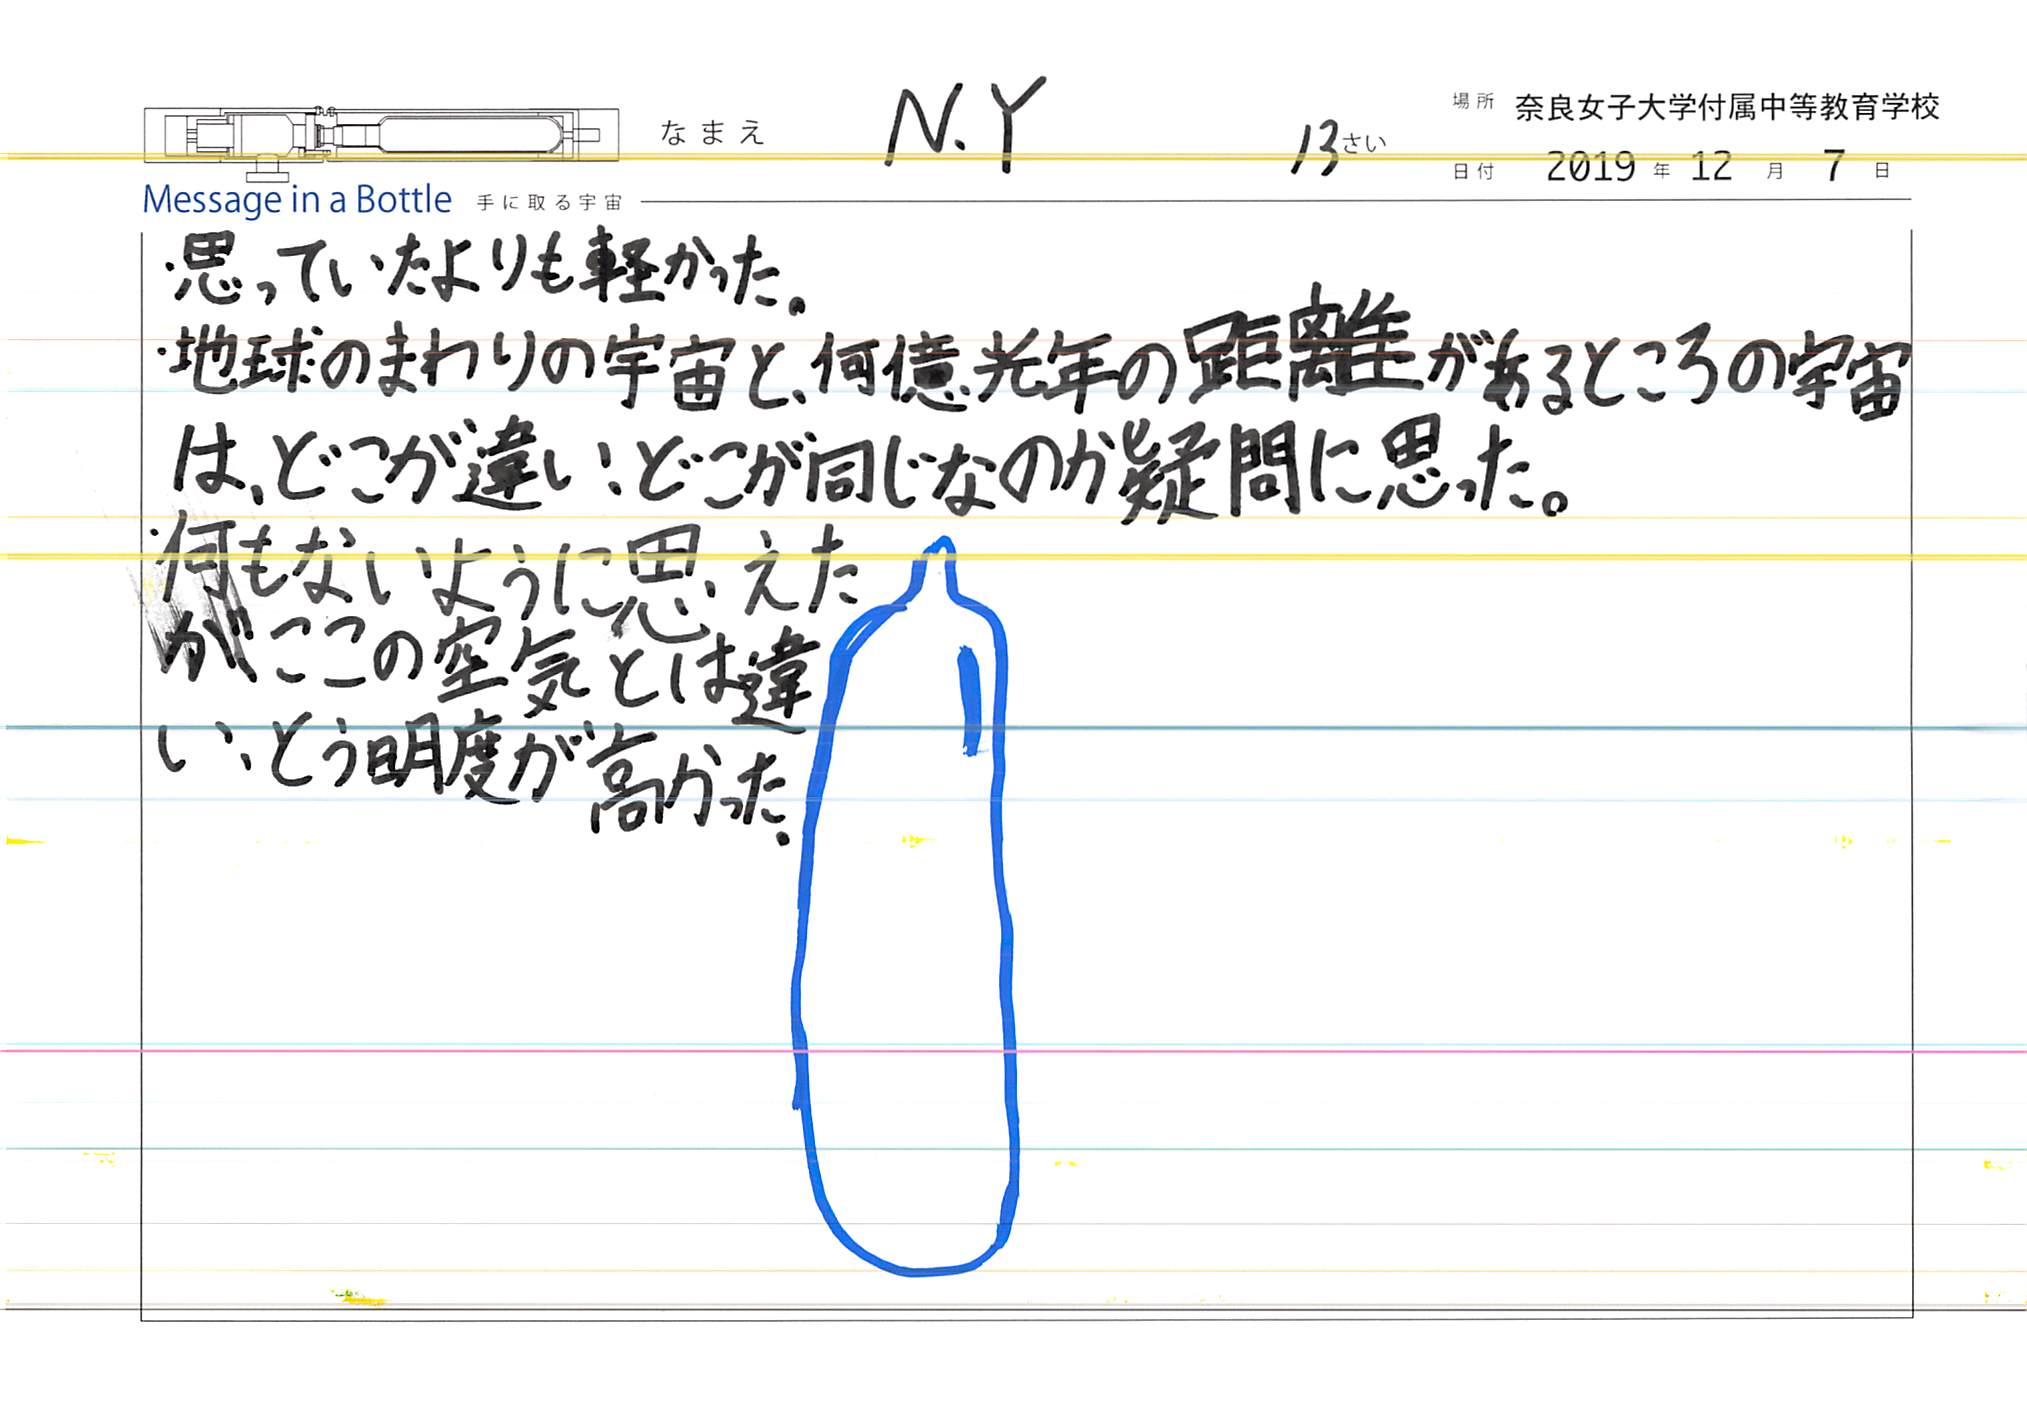 なまえ N.Y 13さい
場所 奈良女子大学付属中等教育学校
日付 2019年12月7日
Message in a Bottle 手に取る宇宙
・思っていたよりも軽かった。
・地球のまわりの宇宙と、何億光年の距離があるところの宇宙
は、どこが違い、どこが同じなのか疑問に思った。
・何もないように思えた
が、ここの空気とは違
い、とう明度が高かった。